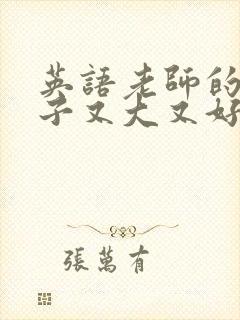 英語老師的
子又大又好
張萬有